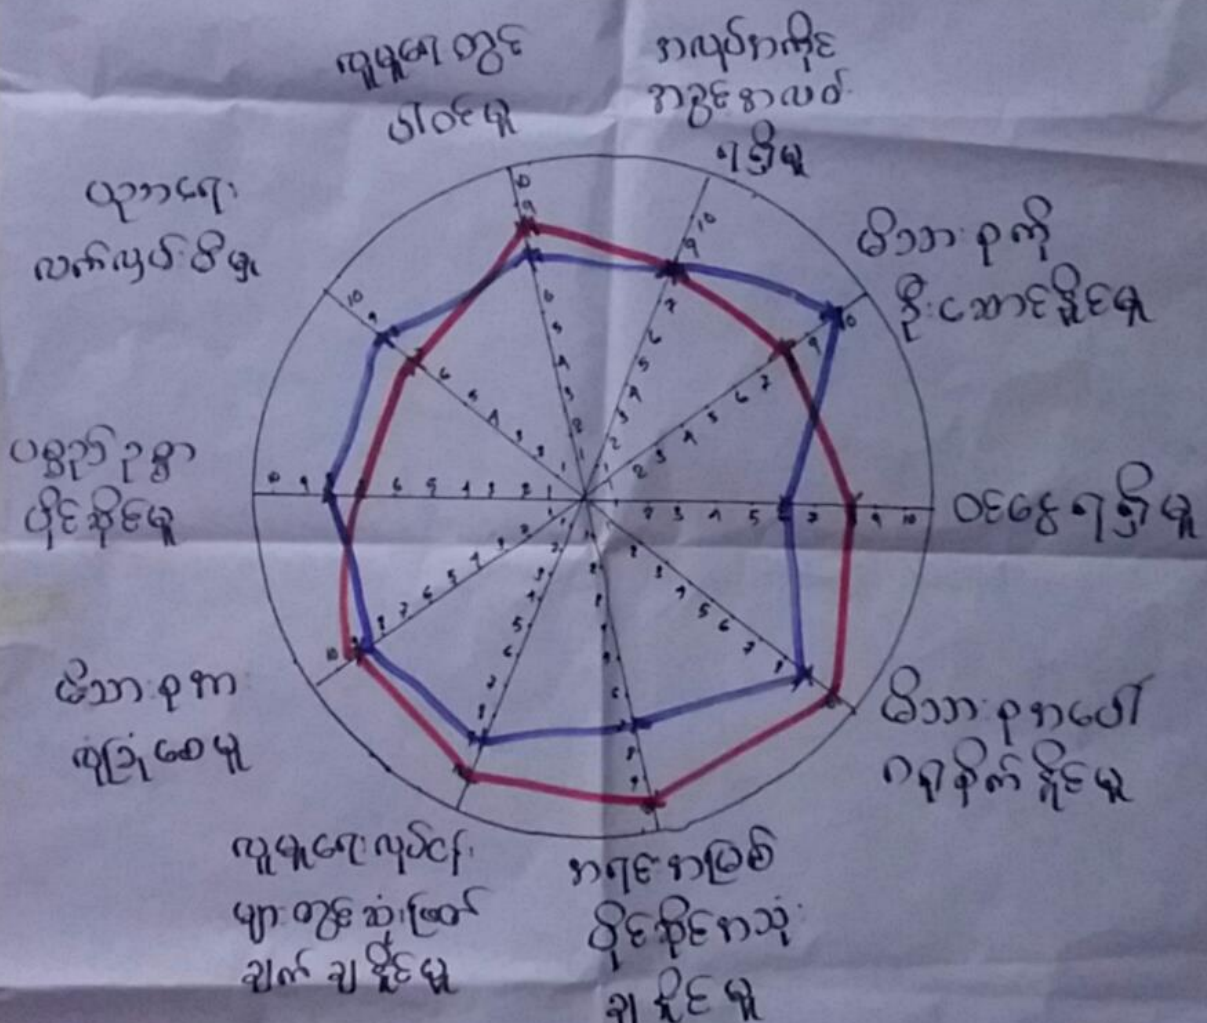 လူမှုရေးတွင်
ပါဝင်မှု
အလုပ်အကိုင်
အခွင့်အလမ်း
ရရှိမှု
မိသားစုကို
ဦးဆောင်နိုင်မှု
ဝင်ငွေရရှိမှု
မိသားစုအပေါ်
ဂရုစိုက်နိုင်မှု
အရင်းအမြစ်
ပိုင်ဆိုင်အသုံး
ချနိုင်မှု
လူမှုရေးလုပ်ငန်း
များတွင်ဆုံးဖြတ်
ချက်ချနိုင်မှု
မိသားစုအား
လုံခြုံစေမှု
ပစ္စည်းဥစ္စာ
ပိုင်ဆိုင်မှု
ပညာရေး
လက်လှမ်းမီမှု